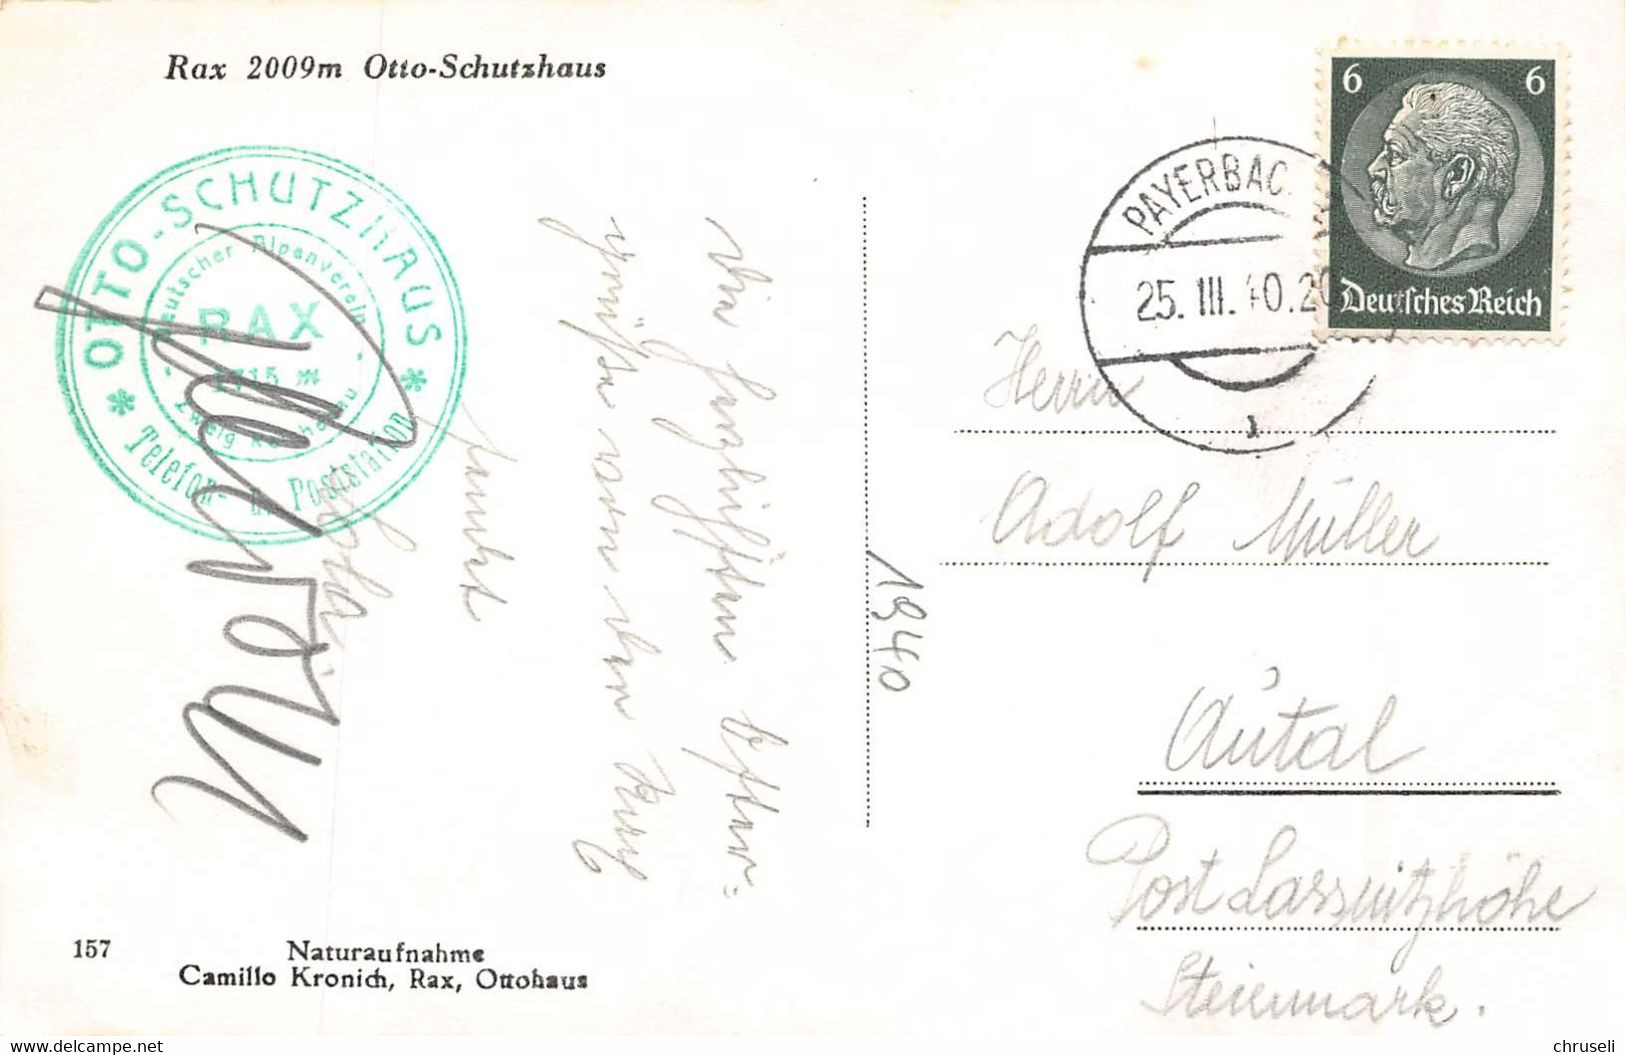 Rax 2009m Otto-Schutzhaus
OTTO-SCHUTZHAUS
Deutscher Alpenverein
RAX
1715 m
Zweig
Telefon- u. Poststation
Die herzlichsten Oster=
grüße von der Rax
sendet
1940
PAYERBAC
25. III. 40.20
1
6 6
Deutsches Reich
Herrn
Adolf Müller
Autal
Post Lassnitzhöhe
Steiermark.
157
Naturaufnahme
Camillo Kronich, Rax, Ottohaus
www.delcampe.net
chruseli